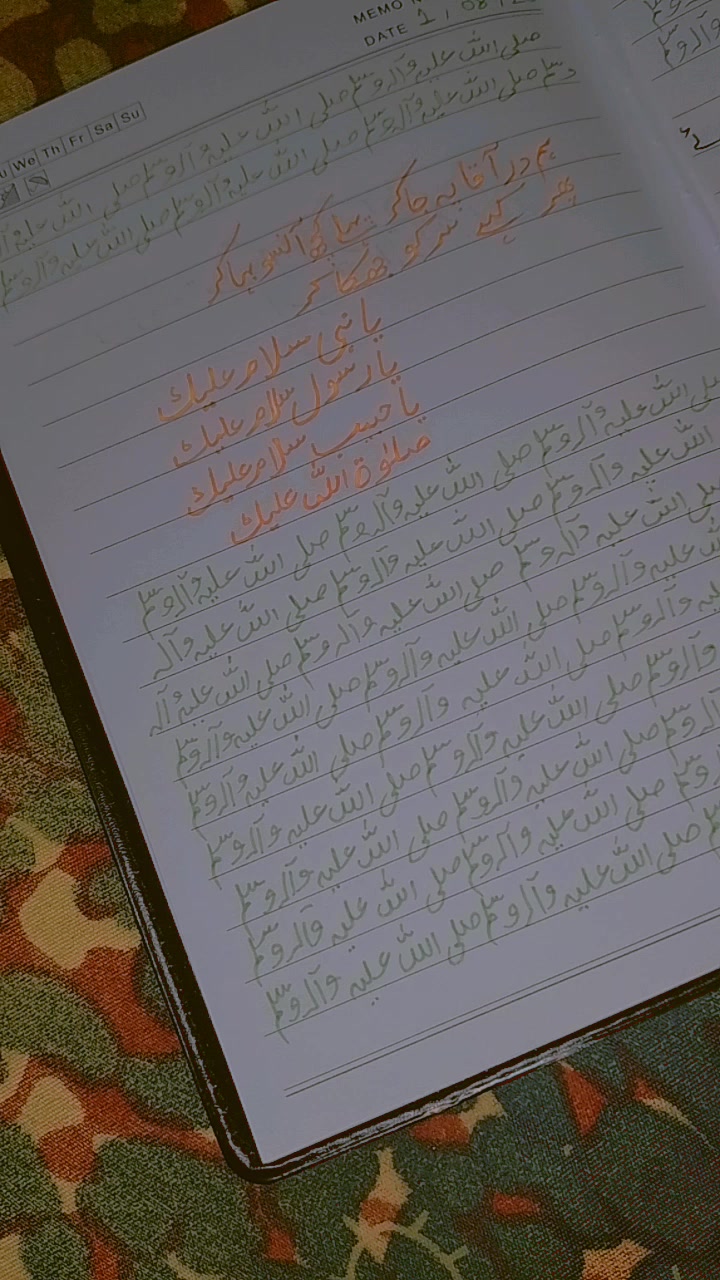 MEMO N
DATE 1 / 08 / 2
We Th Fr Sa Su
صلی اللہ علیہ وآلہ وسلم صلی اللہ علیہ وآلہ وسلم صلی اللہ علیہ
وسلم صلی اللہ علیہ وآلہ وسلم صلی اللہ علیہ وآلہ وسلم صلی اللہ علیہ وآلہ وسلم
ہم در آقا پہ جا کر بہا کر
پھر کہیں سر کو جھکا کر
یا نبی سلام علیک
یا رسول سلام علیک
یا حبیب سلام علیک
صلوٰۃ اللہ علیک
صلی اللہ علیہ وآلہ وسلم صلی اللہ علیہ وآلہ وسلم صلی اللہ علیہ وآلہ وسلم
اللہ علیہ وآلہ وسلم صلی اللہ علیہ وآلہ وسلم صلی اللہ علیہ وآلہ
صلی اللہ علیہ وآلہ وسلم صلی اللہ علیہ وآلہ وسلم صلی اللہ علیہ وآلہ
اللہ علیہ وآلہ وسلم صلی اللہ علیہ وآلہ وسلم صلی اللہ علیہ وآلہ وسلم
علیہ وآلہ وسلم صلی اللہ علیہ وآلہ وسلم صلی اللہ علیہ وآلہ وسلم
وآلہ وسلم صلی اللہ علیہ وآلہ وسلم صلی اللہ علیہ وآلہ وسلم
وآلہ وسلم صلی اللہ علیہ وآلہ وسلم صلی اللہ علیہ وآلہ وسلم
وسلم صلی اللہ علیہ وآلہ وسلم صلی اللہ علیہ وآلہ وسلم
صلی اللہ علیہ وآلہ وسلم صلی اللہ علیہ وآلہ وسلم